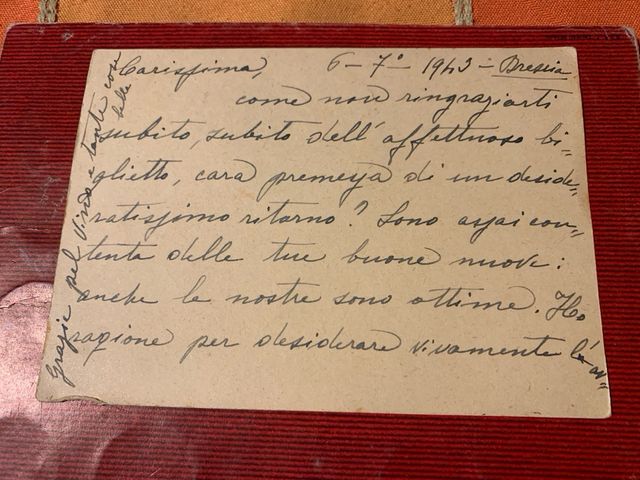 Carissima,
6 - 7° - 1943 - Brescia
come non ringraziarti
subito, subito dell'affettuoso bi=
glietto, cara premessa di un deside=
ratissimo ritorno? Sono assai con=
tenta delle tue buone nuove:
anche le nostre sono ottime. Ho
ragione per desiderare vivamente l'av=
Grazie pel Vinda e tante cose
belle